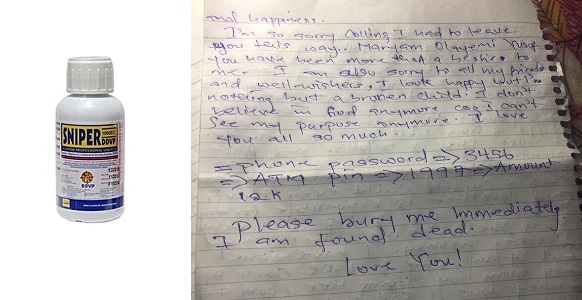 SNIPER
1000EC
DDVP
DDVP
nal happiness.
I'm so sorry Collins, I had to leave
you this way. Maryam Olayemi
You have been more than a bestie to
me. I am also sorry to all my friends
and well-wishers, I look happy but I'm
nothing but a broken child. I don't
believe in God anymore cos I can't
See my purpose anymore. I love
You all so much.
=> phone password => 3456
=> ATM pin => 1999 => Amount
12k
Please bury me immediately
I am found dead.
Love You!